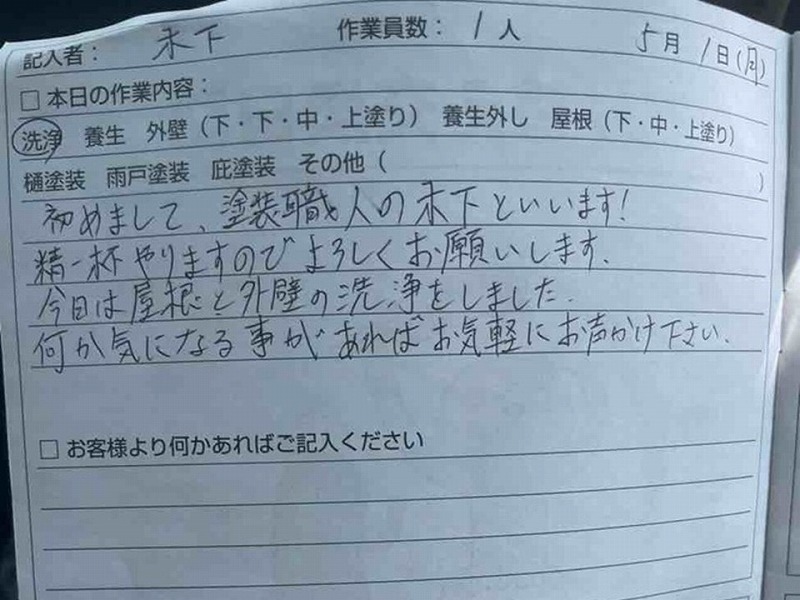 記入者： 木下 作業員数： 1人 5月 1日（月）
□ 本日の作業内容：
洗浄 養生 外壁（下・下・中・上塗り） 養生外し 屋根（下・中・上塗り）
樋塗装 雨戸塗装 庇塗装 その他（ ）
初めまして、塗装職人の木下といいます!
精一杯やりますのでよろしくお願いします.
今日は屋根と外壁の洗浄をしました.
何か気になる事があればお気軽にお声かけ下さい.
□ お客様より何かあればご記入ください